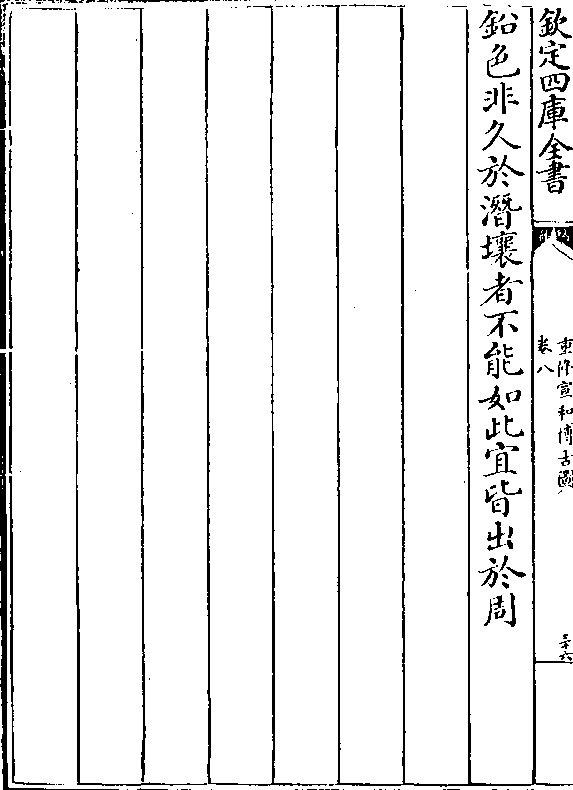 欽定四庫全書
重修宣和博古圖
卷八
三十六
鉛色非久於潛壤者不能如此宜皆出於周